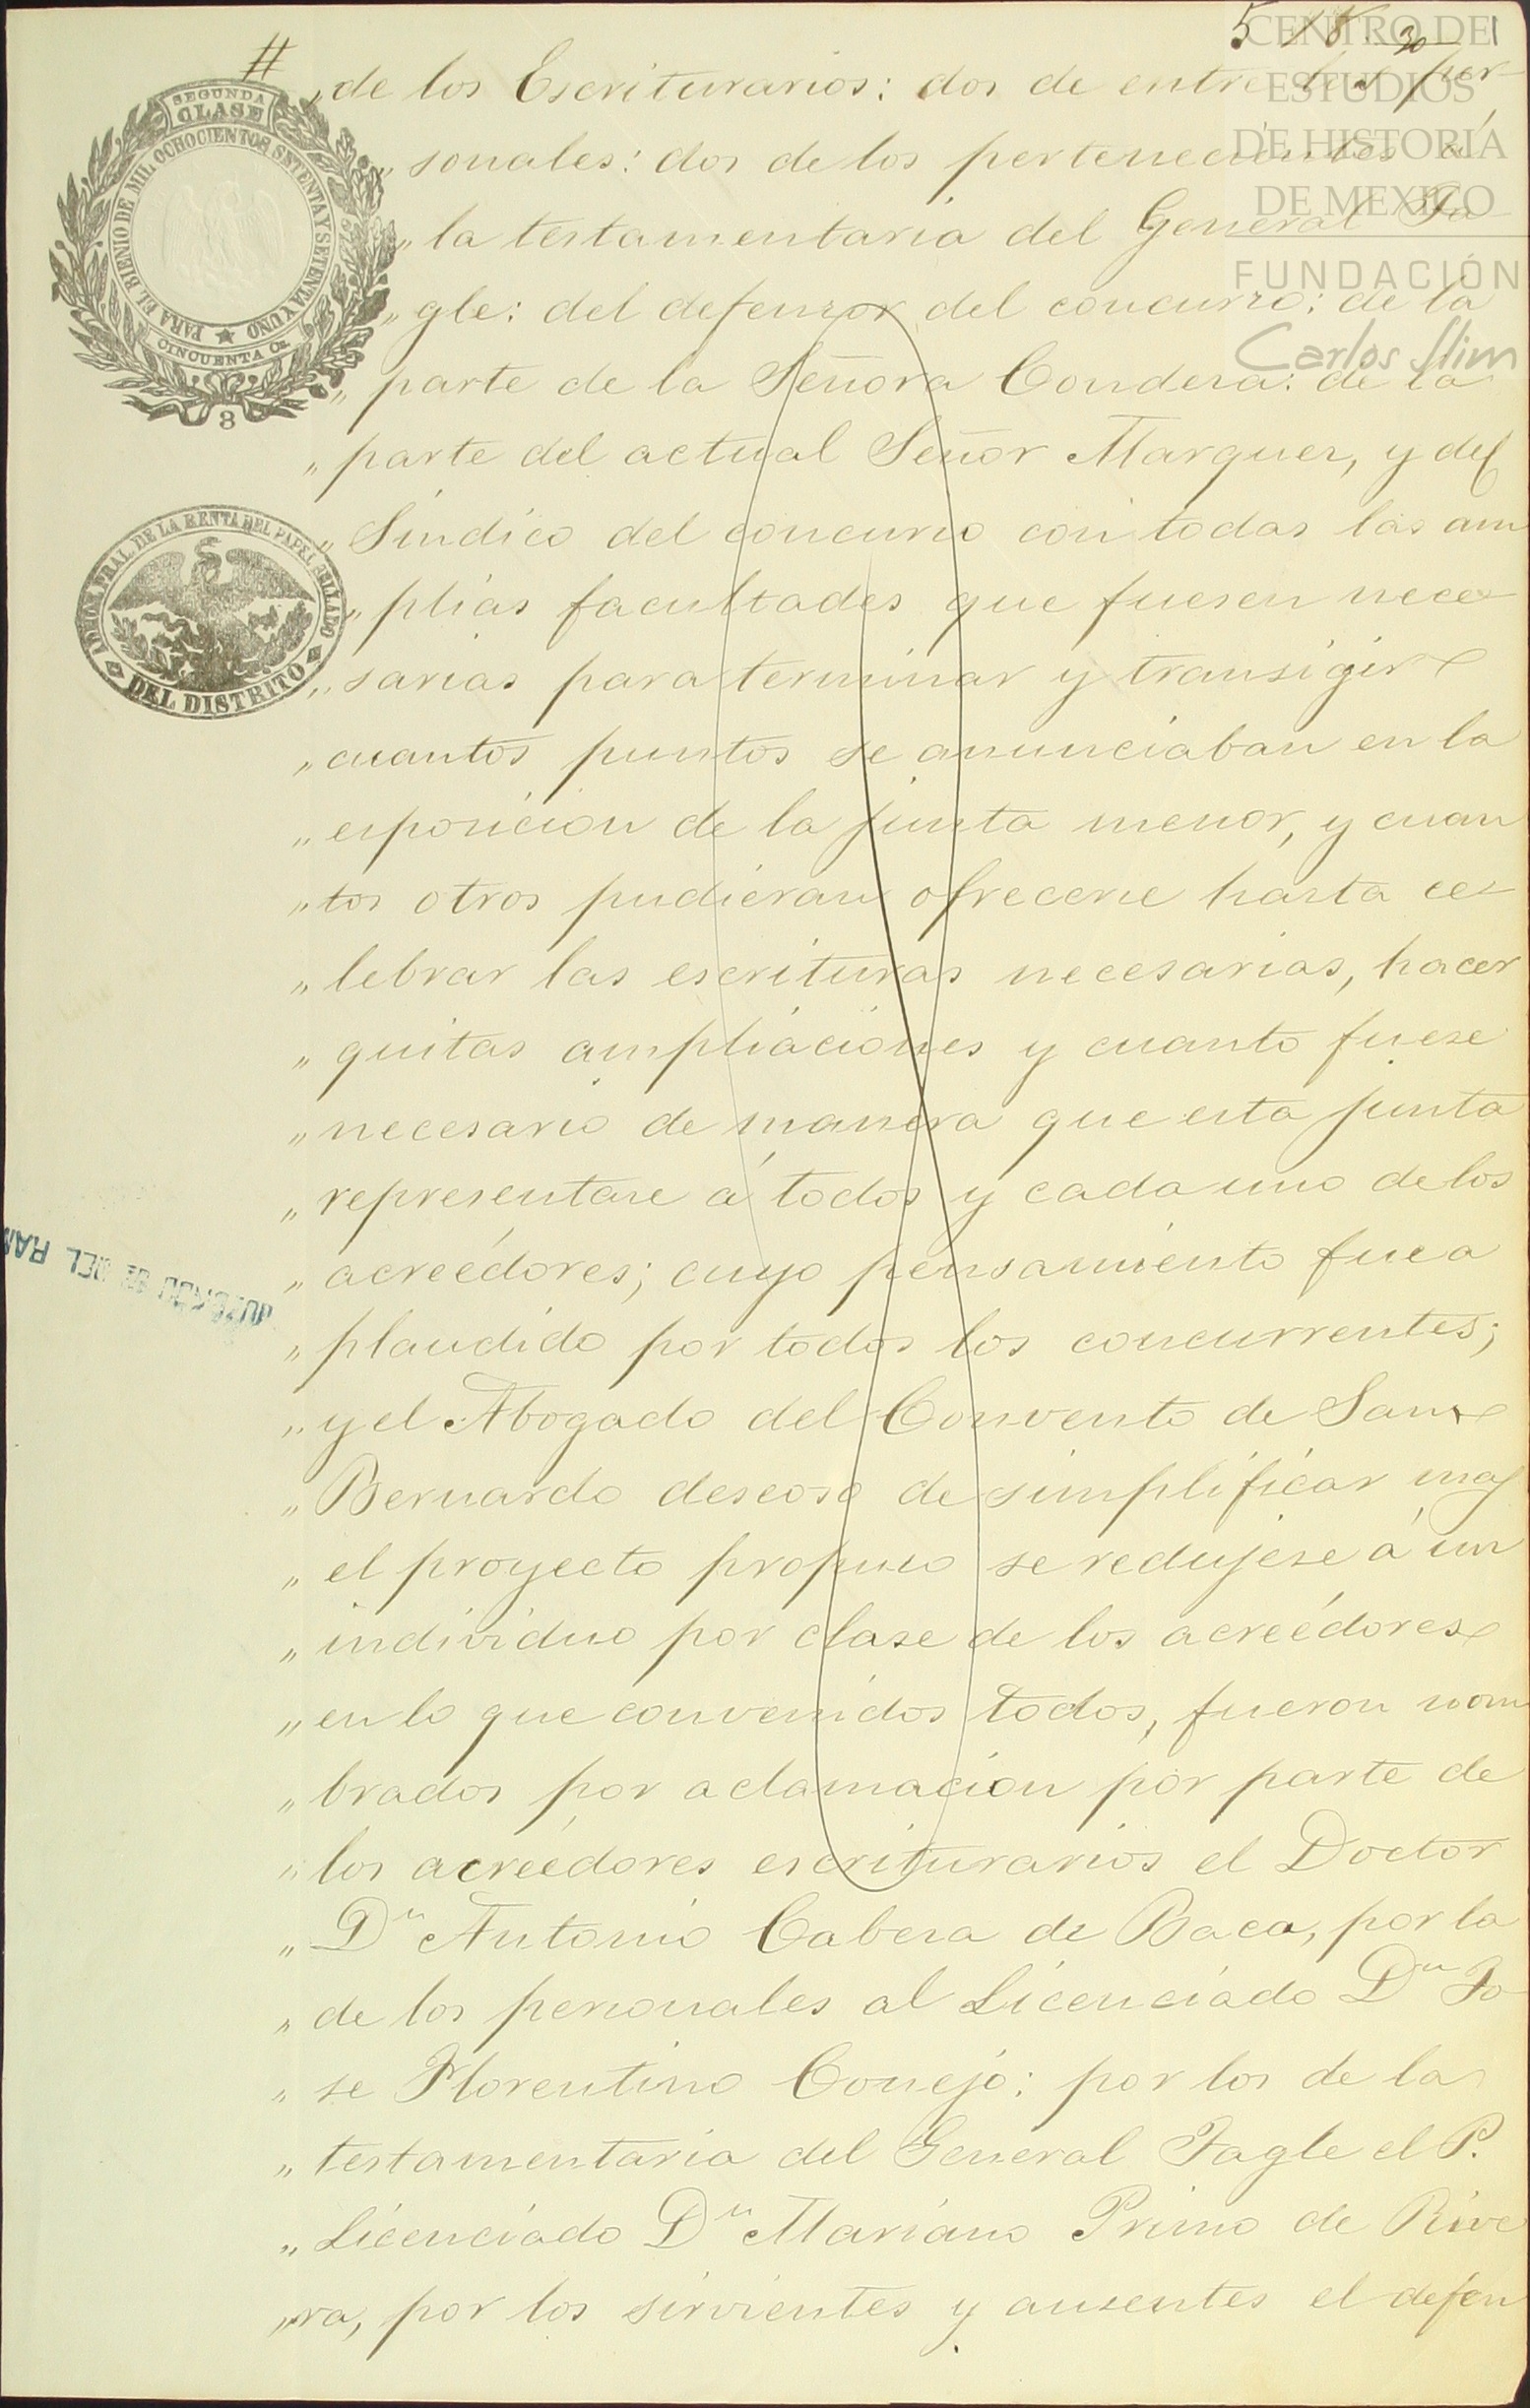 #
5
CENTRO DE
ESTUDIOS
DE HISTORIA
DE MEXICO
FUNDACIÓN
Carlos Slim
SEGUNDA
CLASE
PARA EL BIENIO DE MIL OCHOCIENTOS SETENTA Y SETENTA Y UNO
CINCUENTA Cs.
8
„ de los Escriturarios: dos de entre los per-
„ sonales: dos de los pertenecientes á
„ la testamentaria del General Ta
„ gle: del defensor del concurso: de la
„ parte de la Señora Condesa: de la
„ parte del actual Señor Marques, y del
„ Síndico del concurso con todas las am
„ plias facultades que fuesen nece-
„ sarias para terminar y transigir
„ cuantos puntos se anunciaban en la
„ esposicion de la junta menor, y cuan
„ tos otros pudieran ofrecerse hasta ce-
„ lebrar las escrituras necesarias, hacer
„ quitas ampliaciones y cuanto fuese
„ necesario de manera que esta junta
„ representase á todos y cada uno de los
„ acreédores; cuyo pensamiento fue a
„ plaudido por todos los concurrentes;
„ y el Abogado del Convento de San
„ Bernardo deseoso de simplificar mas
„ el proyecto propuso se redujese á un
„ individuo por clase de los acreédores
„ en lo que convenidos todos, fueron nom
„ brados por aclamacion por parte de
„ los acreédores escriturarios el Doctor
„ Dn Antonio Cabesa de Baca, por la
„ de los personales al Licenciado Dn Jo
„ se Florentino Conejo: por los de la
„ testamentaria del General Tagle el P.
„ Licenciado Dn Mariano Primo de Rive
„ ra, por los sirvientes y ausentes el defen
PRAL. DE LA RENTA DEL PAPEL SELLADO
DEL DISTRITO
JUZGADO DEL RAM